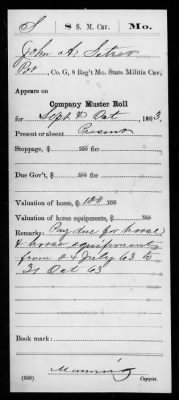 S | 8 S. M. Cav. | Mo.
John A.
Pvt, Co. G, 8 Reg't Mo. State Militia Cav.
Appears on
Company Muster Roll
for Sept & Oct, 1863.
Present or absent Present
Stoppage, $ 100 for
Due Gov't, $ 100 for
Valuation of horse, $ 100 100
Valuation of horse equipments, $ 100
Remarks: Pay due for horse
& horse equipments
from 24 July 63 to
31 Oct 63
Book mark:
Manning
(358) Copyist.